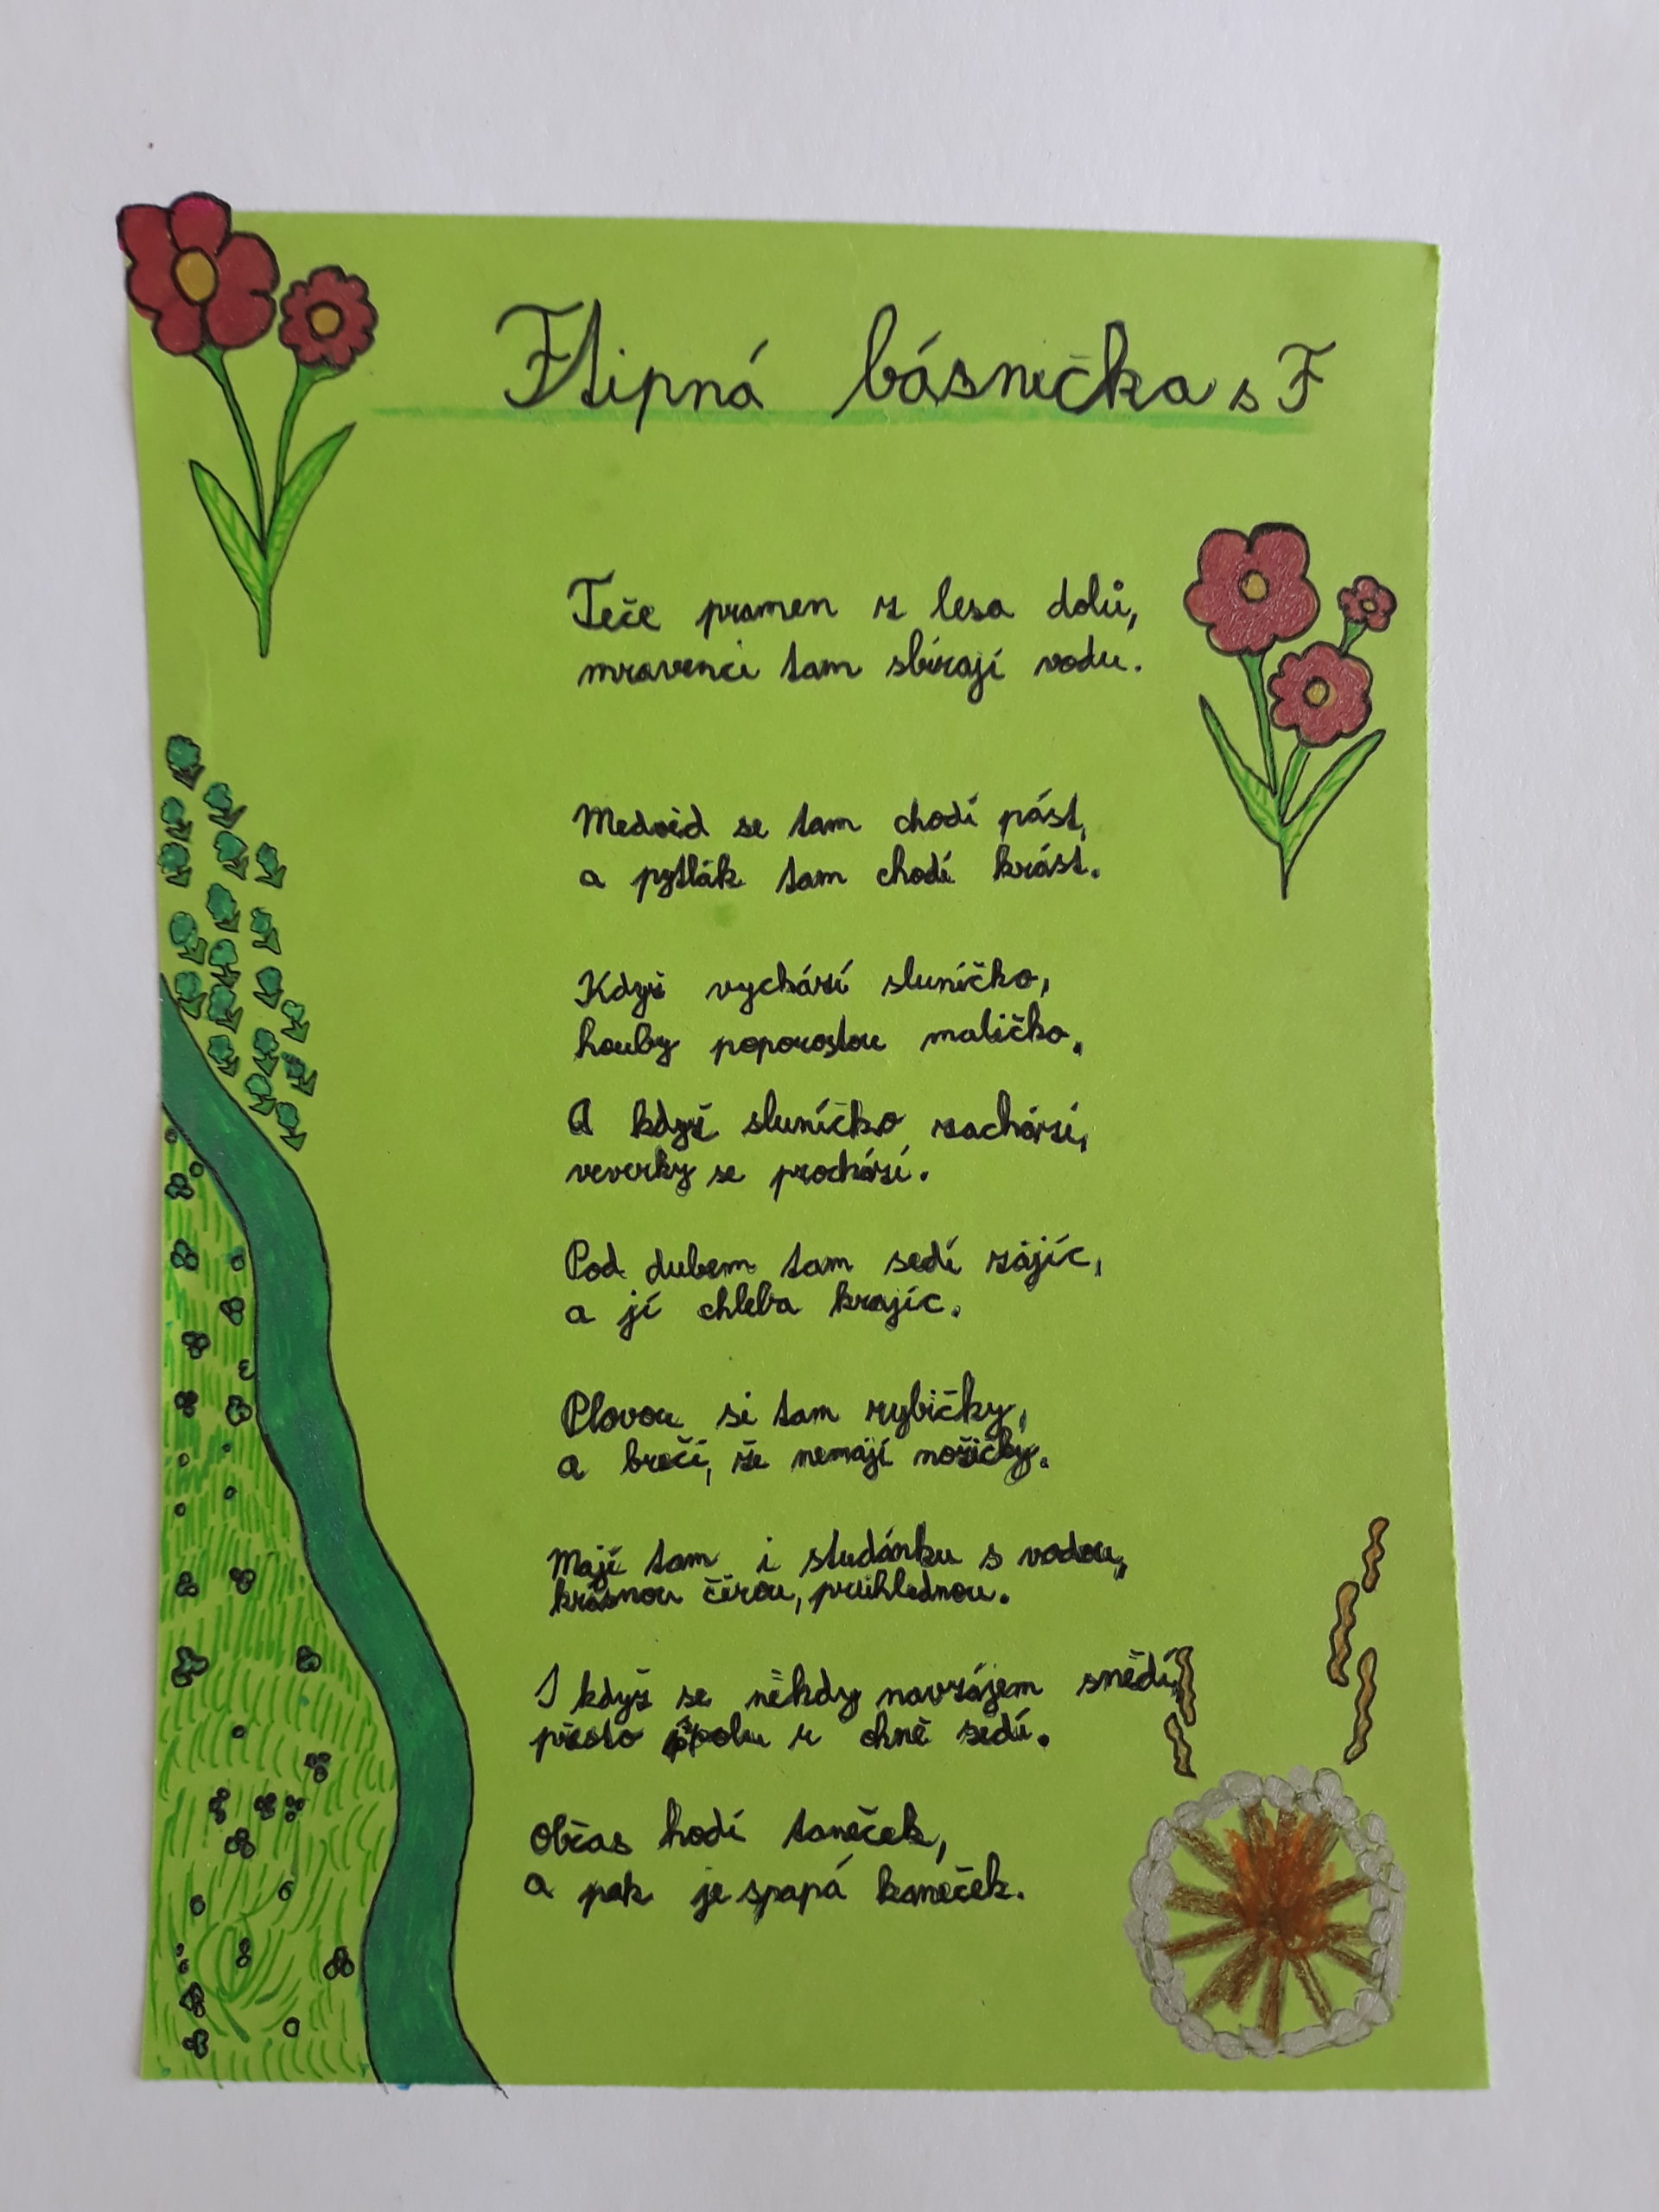 Ftipná básnička s F
Teče pramen z lesa dolů,
mravenci tam sbírají vodu.
Medvěd se tam chodí pást,
a pytlák tam chodí krást.
Když vychází sluníčko,
houby poporostou maličko.
A když sluníčko zachází,
veverky se prochází.
Pod dubem tam sedí zajíc,
a jí chleba krajíc.
Plovou si tam rybičky,
a brečí, že nemají nožičky.
Mají tam i studánku s vodou,
krásnou čirou, průhlednou.
I když se někdy navzájem snědí,
přesto spolu u ohně sedí.
Občas hodí taneček,
a pak je spapá kaneček.